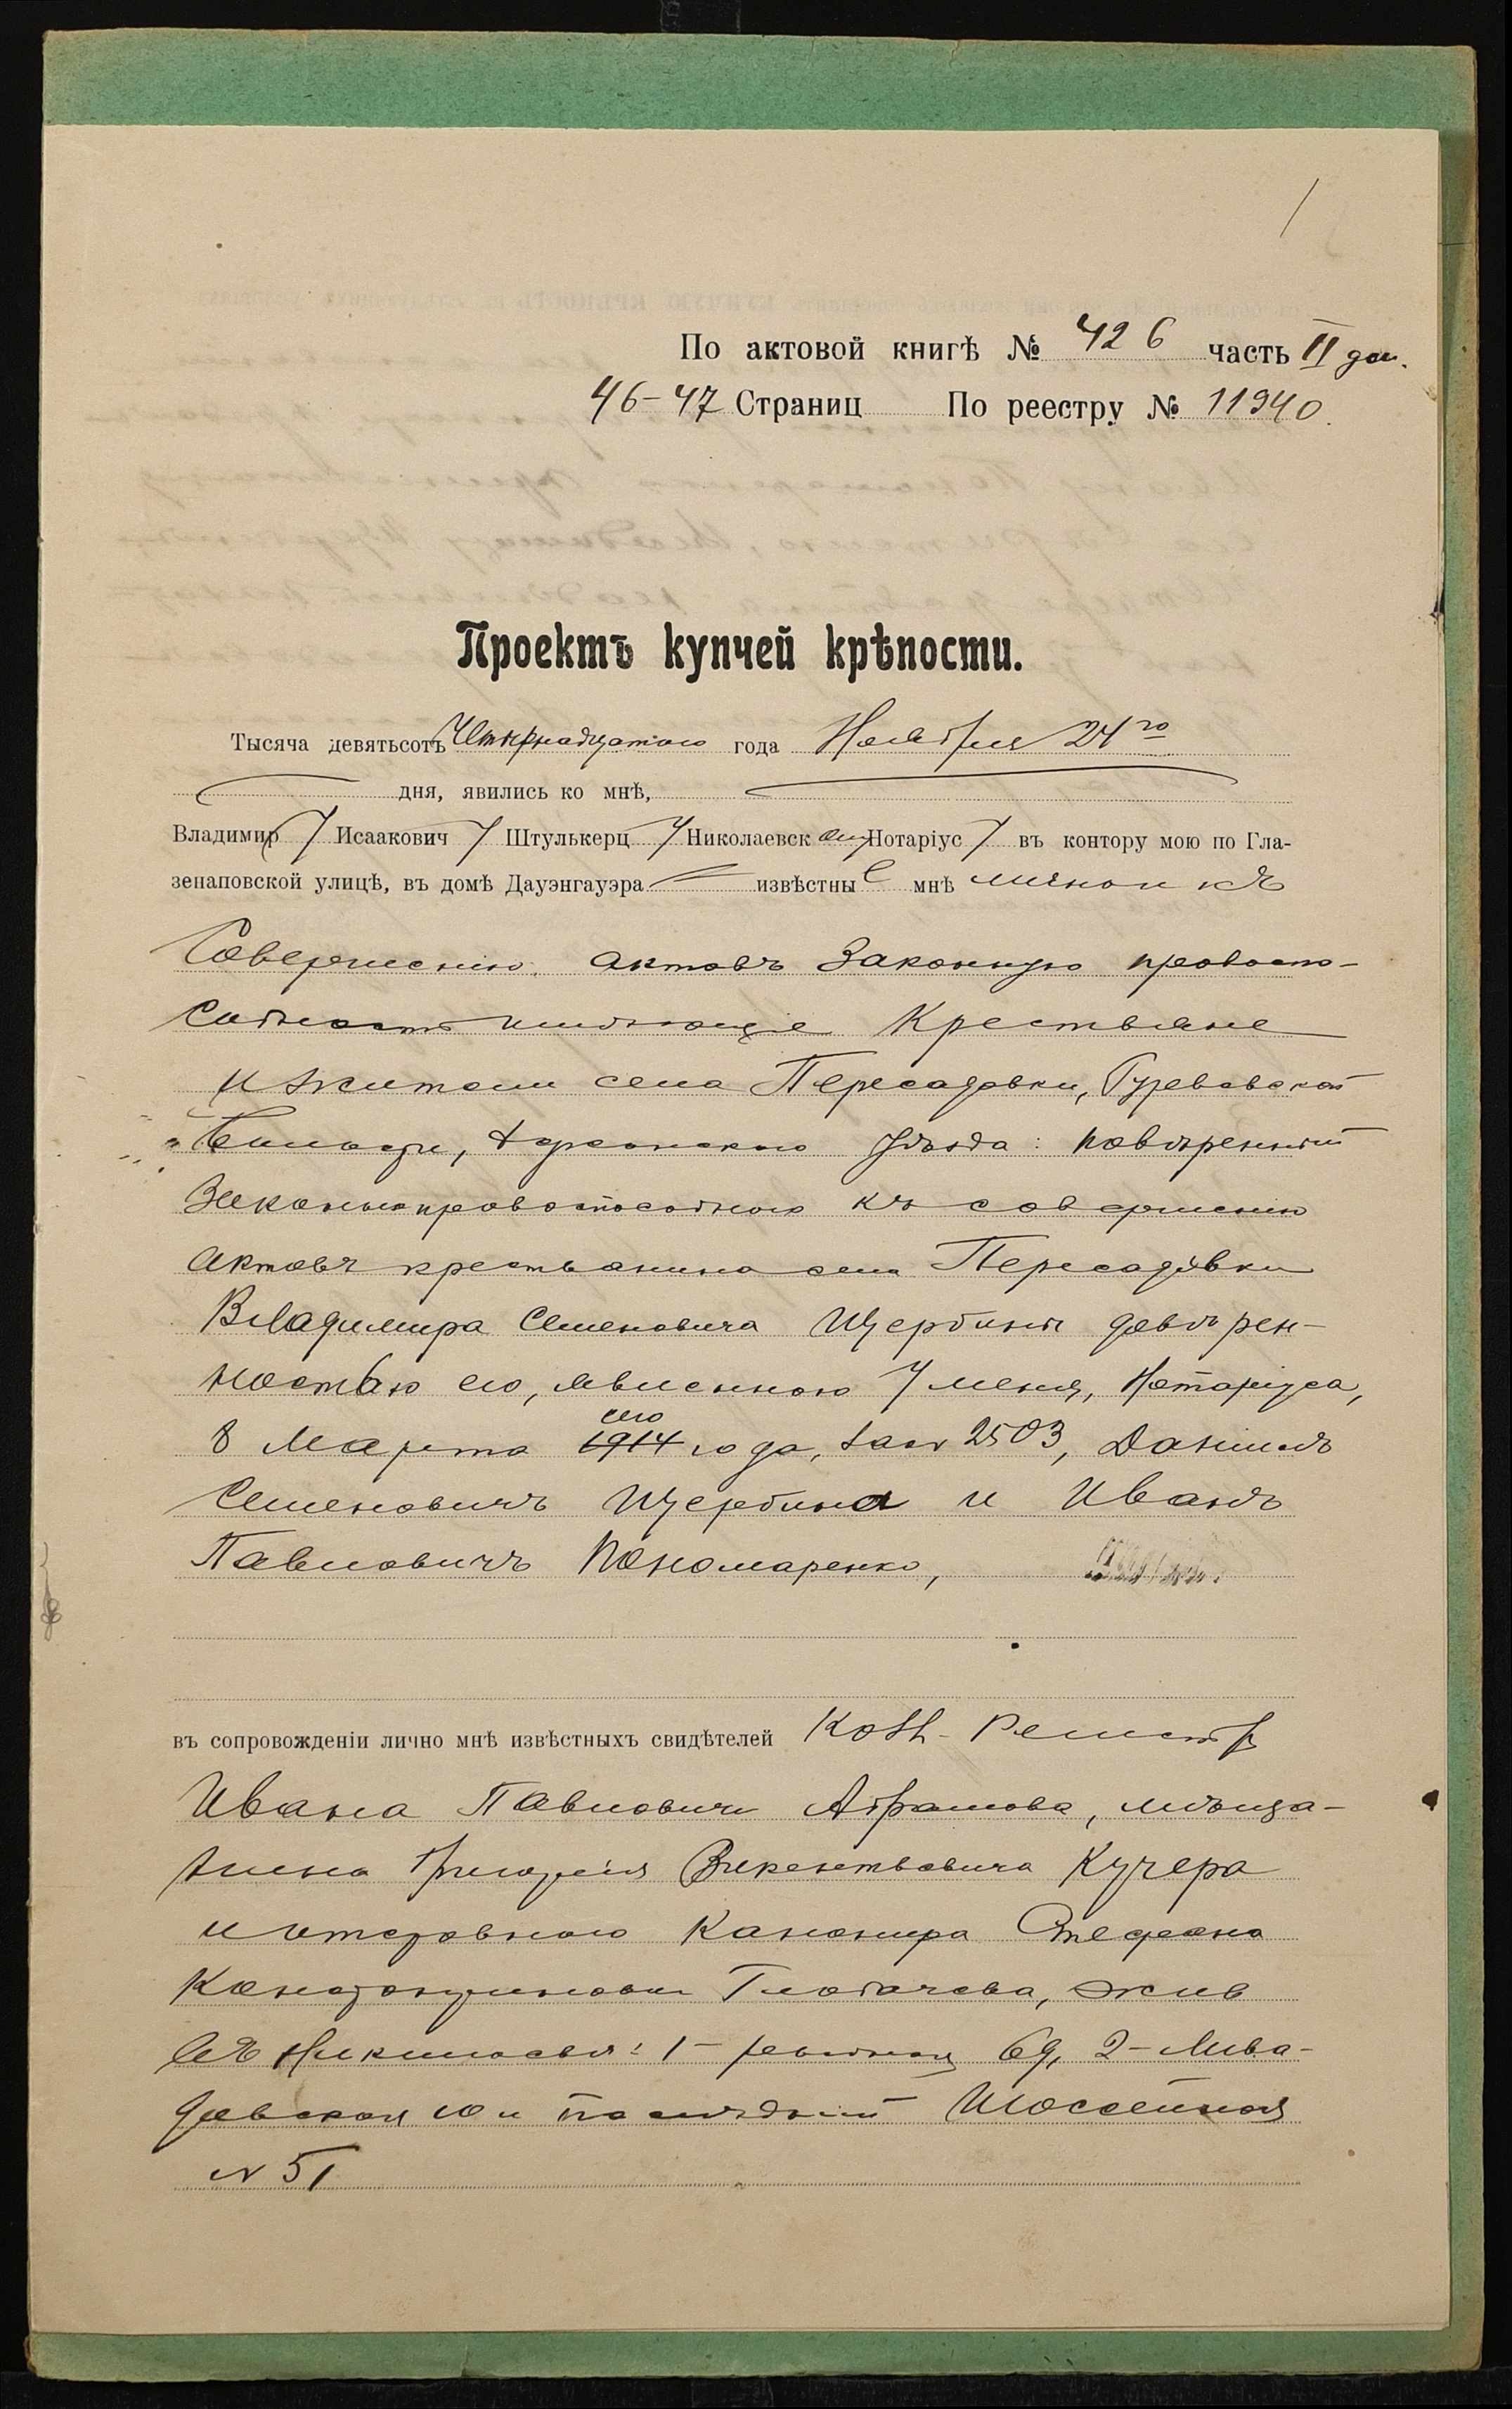 По актовой книгѣ № 426 часть II доп.
46-47 Страниц По реестру № 11940.
Проектъ купчей крѣпости.
Тысяча девятьсотъ Четырнадцатого года Ноября 24го
дня, явились ко мнѣ,
Владимир У Исаакович У Штулькерц У Николаевск ому Нотаріус У въ контору мою по Гла-
зенаповской улицѣ, въ домѣ Дауэнгауэра извѣстны е мнѣ лично и къ
Совершенію актовъ законную правоспо-
собность имѣющіе Крестьяне
и жители села Пересадовки, Гурьевской
Волости, Херсонского уѣзда: повѣренный
Законноправоспособного къ совершенію
актовъ крестьянина села Пересадовки
Владимира Семеновича Щербины довѣрен-
ностью его, явленною У меня, Нотаріуса,
8 Марта 1914 сего года, за № 2503, Даніилъ
Семеновичъ Щербина и Иванъ
Павловичъ Пономаренко,
въ сопровожденіи лично мнѣ извѣстныхъ свидѣтелей Колл. Регистр
Ивана Павловича Абрамова, мѣща-
нина Григорія Викентьевича Кучера
и отставного Канонира Стефана
Константиновича Глобачева, жив
въ Николаевѣ: 1- 69, 2-
и послѣдній
№ 51